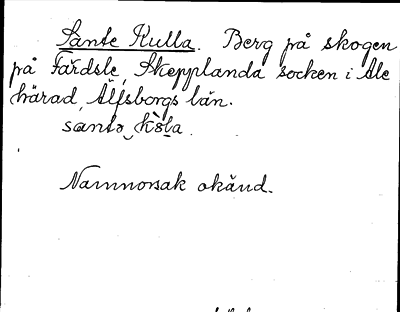 Sante Kulla. Berg på skogen
på Färdsle, Skepplanda socken i Ale
härad, Älfsborgs län.
santə kɵla
Namnorsak okänd.